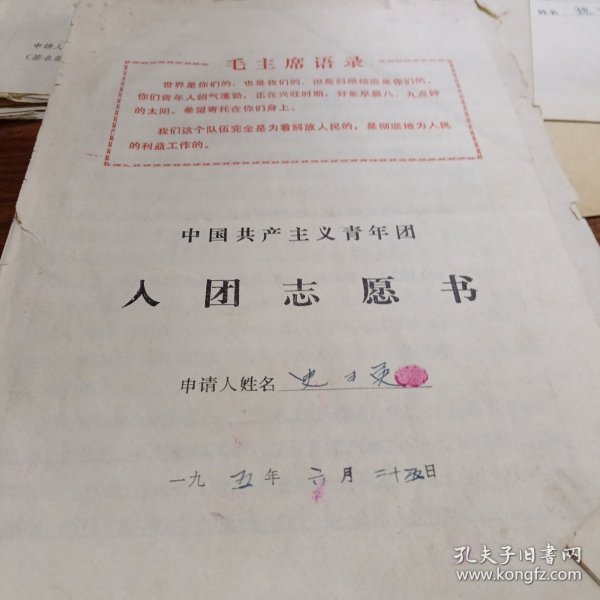 申请人
毛主席语录
世界是你们的，也是我们的，但是归根结底是你们的。
你们青年人朝气蓬勃，正在兴旺时期，好象早晨八、九点钟
的太阳。希望寄托在你们身上。
我们这个队伍完全是为着解放人民的，是彻底地为人民
的利益工作的。
中国共产主义青年团
入团志愿书
申请人姓名 史
一九 五年 六月 二十五日
姓名
孔夫子旧书网
www.kongfz.com